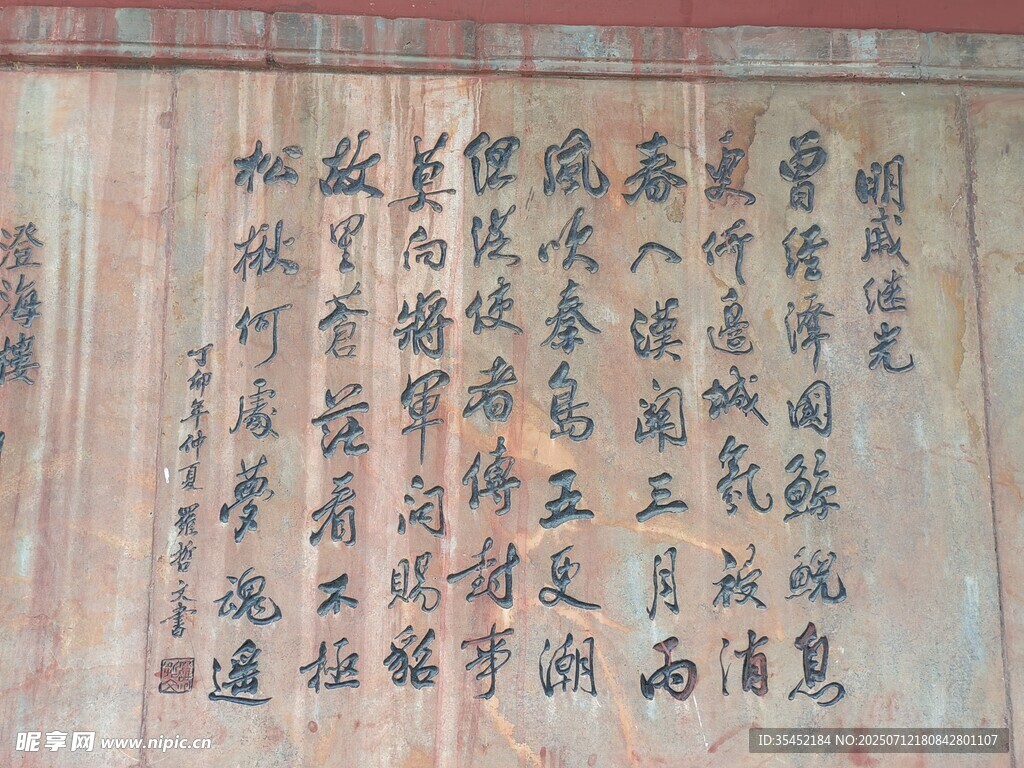 明戚继光
曾经泽國鲸鲵息
更倚邊城氛祲消
春入漢關三月雨
風吹秦島五更潮
但从使者傳封事
莫向將軍问賜貂
故里蒼茫看不極
松楸何處夢魂遙
丁卯年仲夏 羅哲文書
澄海樓
昵享网 www.nipic.cn
ID:35452184 NO:20250712180842801107